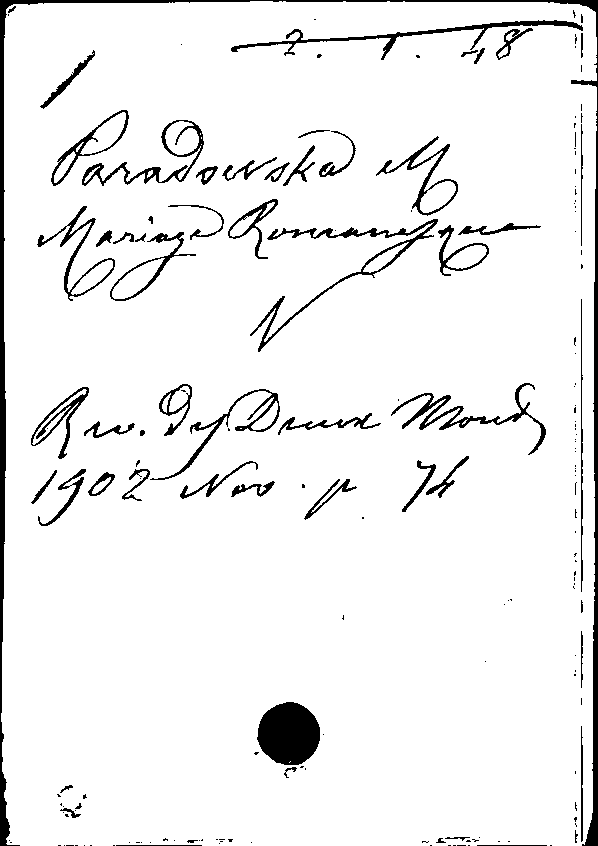 2. 1. 48
Paradowska M
Mariage Romanesque
Rev. des Deux Mondes
1902 Nov. p 74